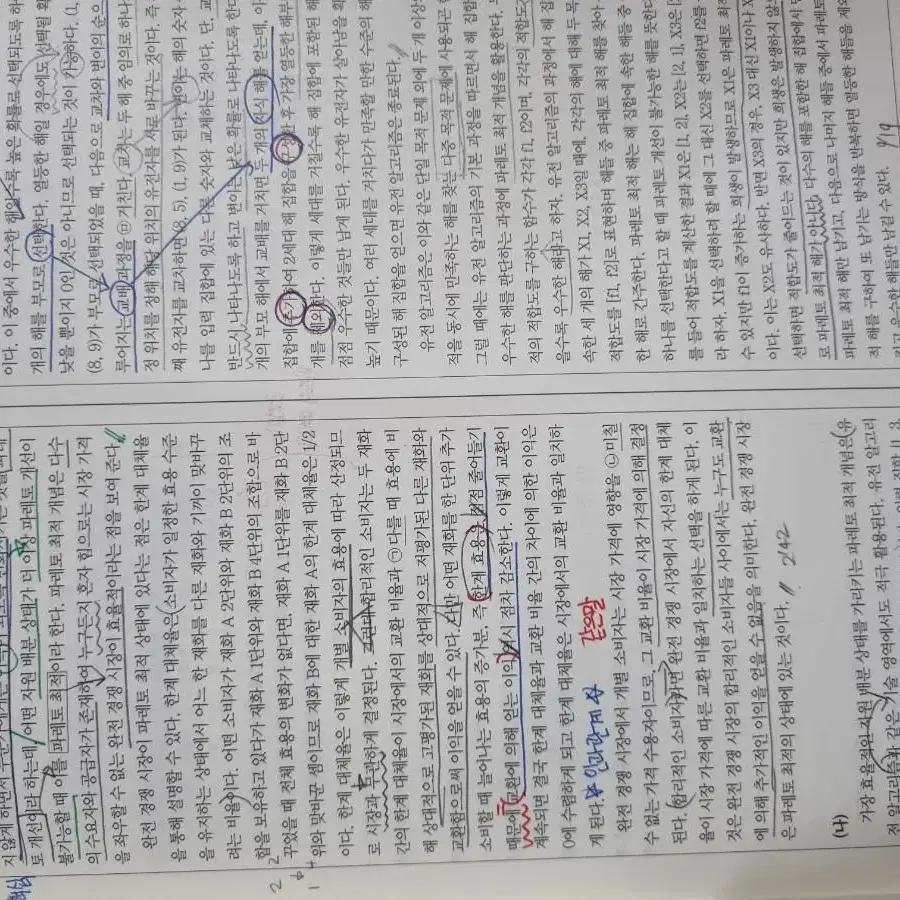 지 않게 하면서
토 개선이라 하는데, 어떤 자원 배분 상태가 더 이상 파레토 개선이
불가능할 때 이를 파레토 최적이라 한다. 파레토 최적 개념은 다수
의 수요자와 공급자가 존재하여 누구든지 혼자 힘으로는 시장 가격
을 좌우할 수 없는 완전 경쟁 시장이 효율적이라는 점을 보여 준다.
완전 경쟁 시장이 파레토 최적 상태에 있다는 점은 한계 대체율
을 통해 설명할 수 있다. 한계 대체율은 소비자가 일정한 효용 수준
을 유지하는 상태에서 어느 한 재화를 다른 재화와 기꺼이 맞바꾸
려는 비율이다. 어떤 소비자가 재화 A 2단위와 재화 B 2단위의 조
합을 보유하고 있다가 재화 A 1단위와 재화 B 4단위의 조합으로 바
꾸었을 때 전체 효용의 변화가 없다면, 재화 A 1단위를 재화 B 2단
위와 맞바꾼 셈이므로 재화 B에 대한 재화 A의 한계 대체율은 1/2
이다. 한계 대체율은 이렇게 개별 소비자의 효용에 따라 산정되므
로 시장과 무관하게 결정된다. 합리적인 소비자는 두 재화
간의 한계 대체율이 시장에서의 교환 비율과 ㉠다를 때 효용에 비
해 상대적으로 고평가된 재화를 상대적으로 저평가된 다른 재화와
교환함으로써 이익을 얻을 수 있다. 다만 어떤 재화를 한 단위 추가
소비할 때 늘어나는 효용의 증가분, 즉 한계 효용은 점점 줄어들기
때문에 교환에 의해 얻는 이익 역시 점차 감소한다. 이렇게 교환이
계속되면 결국 한계 대체율과 교환 비율 간의 차이에 의한 이익은
0에 수렴하게 되고 한계 대체율은 시장에서의 교환 비율과 일치하
게 된다. ☆인과관계☆ 같은말
완전 경쟁 시장에서 개별 소비자는 시장 가격에 영향을 ㉡미칠
수 없는 가격 수용자이므로, 그 교환 비율이 시장 가격에 의해 결정
된다. 합리적인 소비자라면 완전 경쟁 시장에서 자신의 한계 대체
율이 시장 가격에 따른 교환 비율과 일치하는 선택을 하게 된다. 이
것은 완전 경쟁 시장의 합리적인 소비자들 사이에서는 누구도 교환
에 의해 추가적인 이익을 얻을 수 없음을 의미한다. 완전 경쟁 시장
은 파레토 최적의 상태에 있는 것이다. 2'42
(나)
가장 효율적인 자원 배분 상태를 가리키는 파레토 최적 개념은 유
전 알고리즘과 같은 기술 영역에서도 적극 활용된다. 유전 알고리
이다. 이 중에서 우수한 해일수록 높은 확률로 선택되도록 하
개의 해를 부모로 선택한다. 열등한 해일 경우에도 선택될 확
낮을 뿐이지 0인 것은 아니므로 선택되는 것이 가능하다. (1,
(8, 9)가 부모로 선택되었을 때, 다음으로 교차와 변이의 순으
루어지는 교배 과정을 ㉢거친다. 교차는 두 해 중 임의로 하나
정 위치를 정해 해당 위치의 유전자를 서로 바꾸는 것이다. 즉
째 유전자를 교차하면 (8, 5), (1, 9)가 된다. 변이는 해의 숫자
나를 입력 집합에 있는 다른 숫자와 교체하는 것이다. 단, 교
반드시 나타나도록 하고 변이는 낮은 확률로 나타나도록 한다
개의 부모 해에서 교배를 거치면 두 개의 자식 해를 얻는데, 이
집합에 추가하여 2세대 해 집합을 구성한 후 가장 열등한 해부
개를 제외한다. 이렇게 세대를 거칠수록 해 집합에 포함된 해
점점 우수한 것들만 남게 된다. 우수한 유전자가 살아남을 확
높기 때문이다. 여러 세대를 거치다가 만족할 만한 수준의 해
구성된 해 집합을 얻으면 유전 알고리즘은 종료된다.
유전 알고리즘은 이와 같은 단일 목적 문제 외에 두 개 이상
적을 동시에 만족하는 해를 찾는 다중 목적 문제에 사용되곤 한
그럴 때에는 유전 알고리즘의 기본 과정을 따르면서 해 집합
우수한 해를 판단하는 과정에 파레토 최적 개념을 활용한다.
적의 적합도를 구하는 함수가 각각 f1, f2이며, 각각의 적합도
을수록 우수한 해라고 하자. 유전 알고리즘의 과정에서 해 집
속한 세 개의 해가 X1, X2, X3일 때에, 각각의 해에 대해 두 목
적합도를 [f1, f2]로 표현하며 해들 중 파레토 최적 해를 찾아
한 해로 간주한다. 파레토 최적 해는 해 집합에 속한 해들 중
하나를 선택한다고 할 때 파레토 개선이 불가능한 해를 뜻한다
를 들어 적합도를 계산한 결과 X1은 [1, 2], X2는 [2, 1], X3은
라 하자. X1을 선택하려 할 때에 그 대신 X2를 선택하면 f2를
수 있지만 f1이 증가하는 희생이 발생하므로 X1은 파레토 최적
이다. 이는 X2도 유사하다. 반면 X3의 경우, X3 대신 X1이나 X
선택하면 적합도가 줄어드는 것이 있지만 희생은 발생하지 않
로 파레토 최적 해가 아니다. 다수의 해를 포함한 해 집합에서
파레토 최적 해만 남기고, 다음으로 나머지 해들 중에서 파레토
적 해를 구하여 또 남기는 방식을 반복하면 열등한 해들을 제외
하고 우수한 해들만 남길 수 있다.